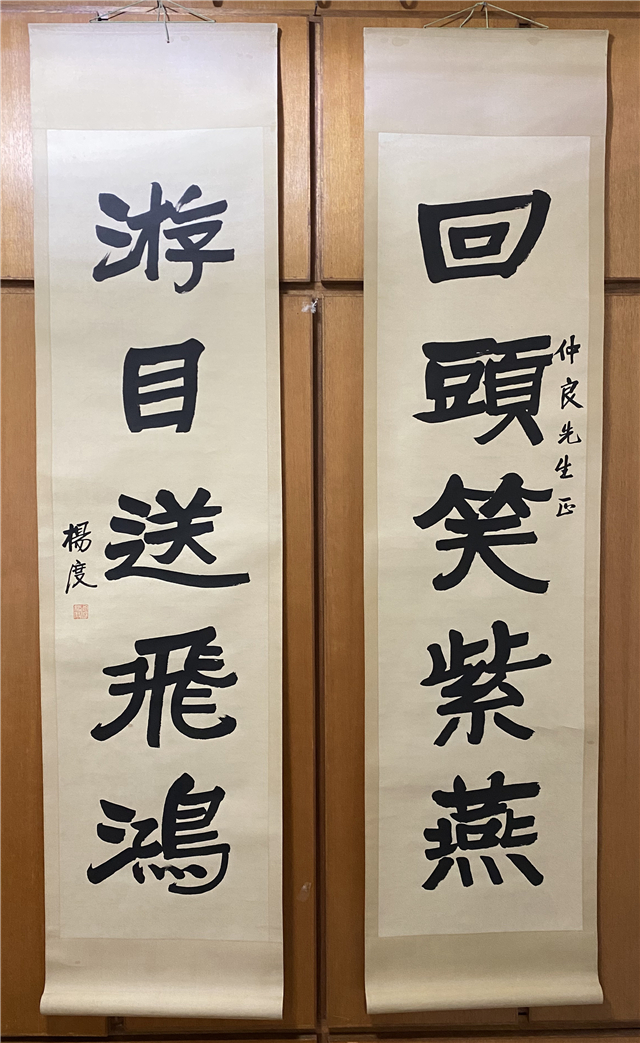 回頭笑紫燕
仲良先生正
游目送飛鴻
楊度